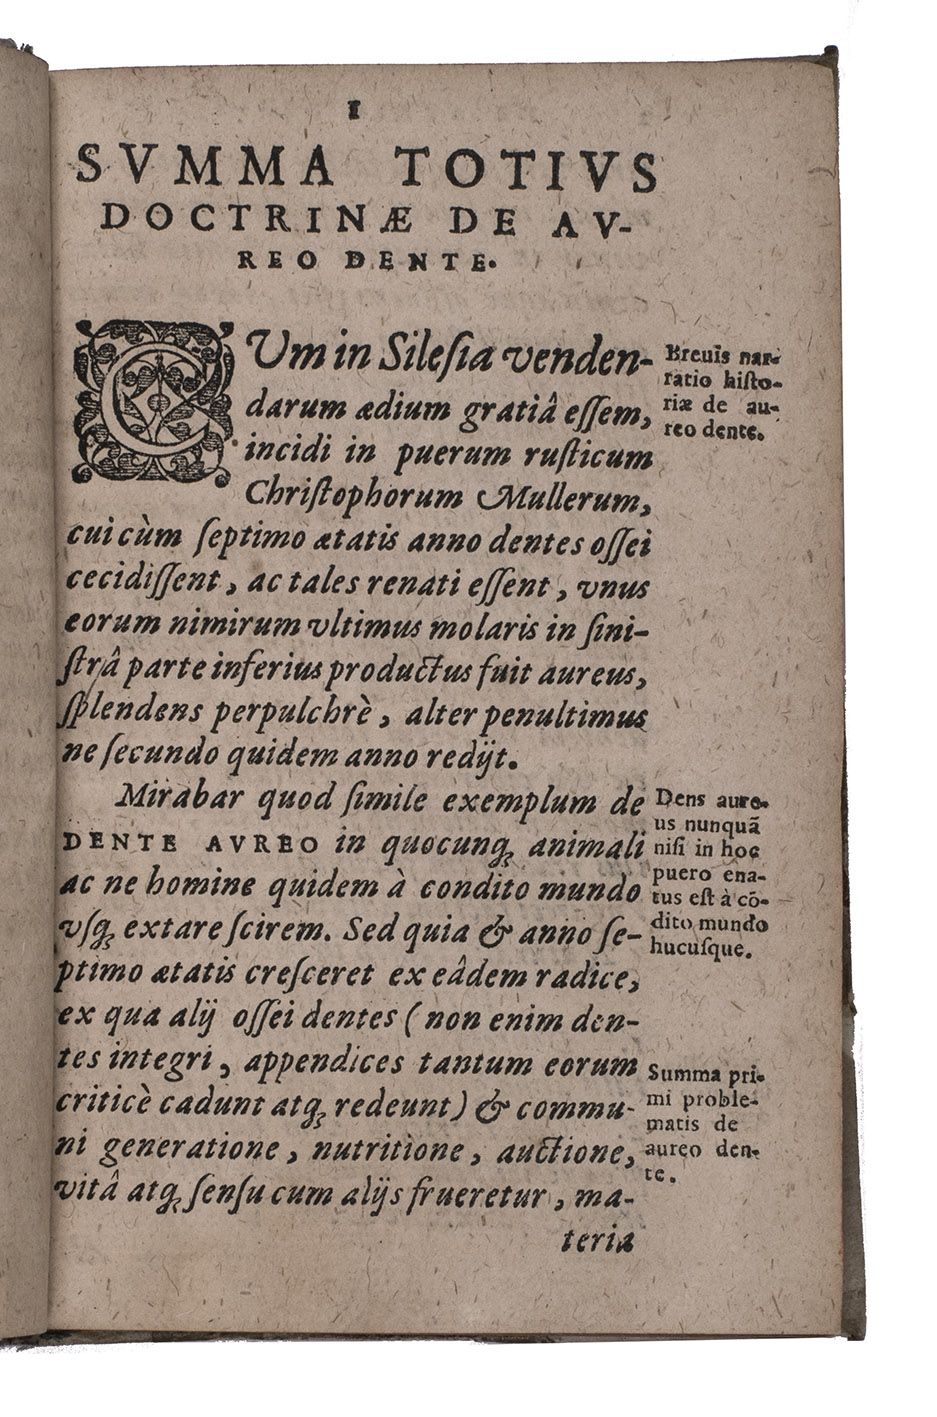 I
SVMMA TOTIVS
DOCTRINÆ DE AV-
REO DENTE.
CVm in Sileſia venden-
darum ædium gratiâ eſſem,
incidi in puerum ruſticum
Chriſtophorum Mullerum,
cui cùm ſeptimo ætatis anno dentes oſſei
cecidiſſent, ac tales renati eſſent, vnus
eorum nimirum vltimus molaris in ſini-
ſtrâ parte inferius productus fuit aureus,
ſplendens perpulchrè, alter penultimus
ne ſecundo quidem anno redijt.
Breuis nar-
ratio hiſto-
riæ de au-
reo dente.
Mirabar quod ſimile exemplum de
DENTE AVREO in quocunq; animali
ac ne homine quidem à condito mundo
vſq; extare ſcirem. Sed quia & anno ſe-
ptimo ætatis creſceret ex eâdem radice,
ex qua alij oſſei dentes (non enim den-
tes integri, appendices tantum eorum
criticè cadunt atq; redeunt) & commu-
ni generatione, nutritione, auctione,
vitâ atq; ſenſu cum alijs frueretur, ma-
Dens aure-
us nunquã
niſi in hoc
puero ena-
tus eſt à cõ-
dito mundo
hucuſque.
Summa pri-
mi proble-
matis de
aureo den-
te.
teria